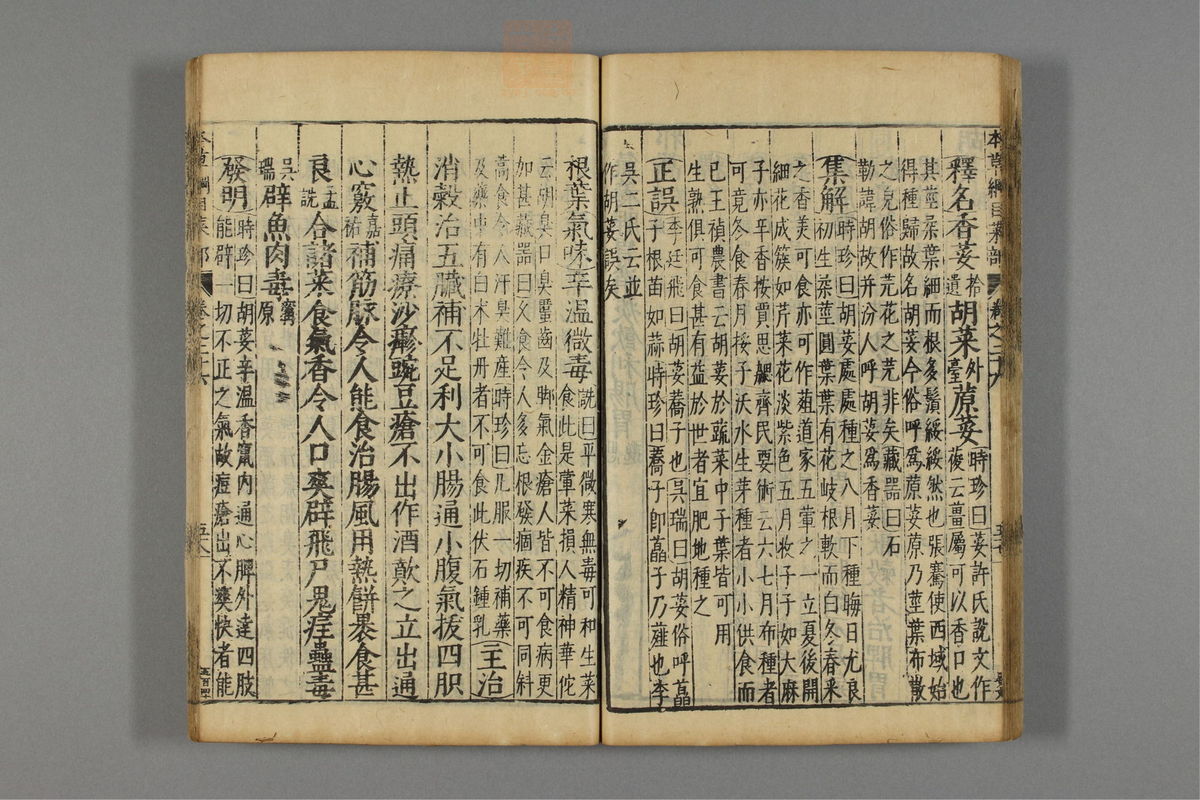 本草綱目菜部 卷之二十六 五十七
釋名香荽拾遺胡菜外臺蒝荽時珍曰荽許氏說文作
葰云薑屬可以香口也
其莖柔葉細而根多鬚綏綏然也張騫使西域始
得種歸故名胡荽今俗呼爲蒝荽蒝乃莖葉布散
之皃俗作芫花之芫非矣藏器曰石
勒諱胡故并汾人呼胡荽爲香荽
集解時珍曰胡荽處處種之八月下種晦日尤良
初生柔莖圓葉葉有花岐根軟而白冬春采
之香美可食亦可作葅道家五葷之一立夏後開
細花成簇如芹菜花淡紫色五月收子子如大麻
子亦辛香按賈思勰齊民要術云六七月布種者
可竟冬食春月挼子沃水生芽種者小小供食而
已王禎農書云胡荽於蔬菜中子葉皆可用
生熟俱可食甚有益於世者宜肥地種之
正誤李廷飛曰胡荽蕎子也吳瑞曰胡荽俗呼䕬
子根苗如蒜時珍曰蕎子即䕬子乃薤也李
吳二氏云並
作胡荽誤矣
根葉氣味辛溫微毒詵曰平微寒無毒可和生菜
食此是葷菜損人精神華佗
云胡臭口臭䘌齒及脚氣金瘡人皆不可食病更
加甚藏器曰久食令人多忘根發痼疾不可同斜
蒿食令人汗臭難産時珍曰凡服一切補藥
及藥中有白朮牡丹者不可食此伏石鍾乳主治
消穀治五臟補不足利大小腸通小腹氣拔四肢
熱止頭痛療沙疹豌豆瘡不出作酒歕之立出通
心竅嘉祐補筋脈令人能食治腸風用熱餅裹食甚
良孟詵合諸菜食氣香令人口爽辟飛尸鬼疰蠱毒
吳瑞辟魚肉毒寗原
發明時珍曰胡荽辛溫香竄內通心脾外達四肢
能辟一切不正之氣故痘瘡出不爽快者能
本草綱目菜部 卷之二十六 五十八